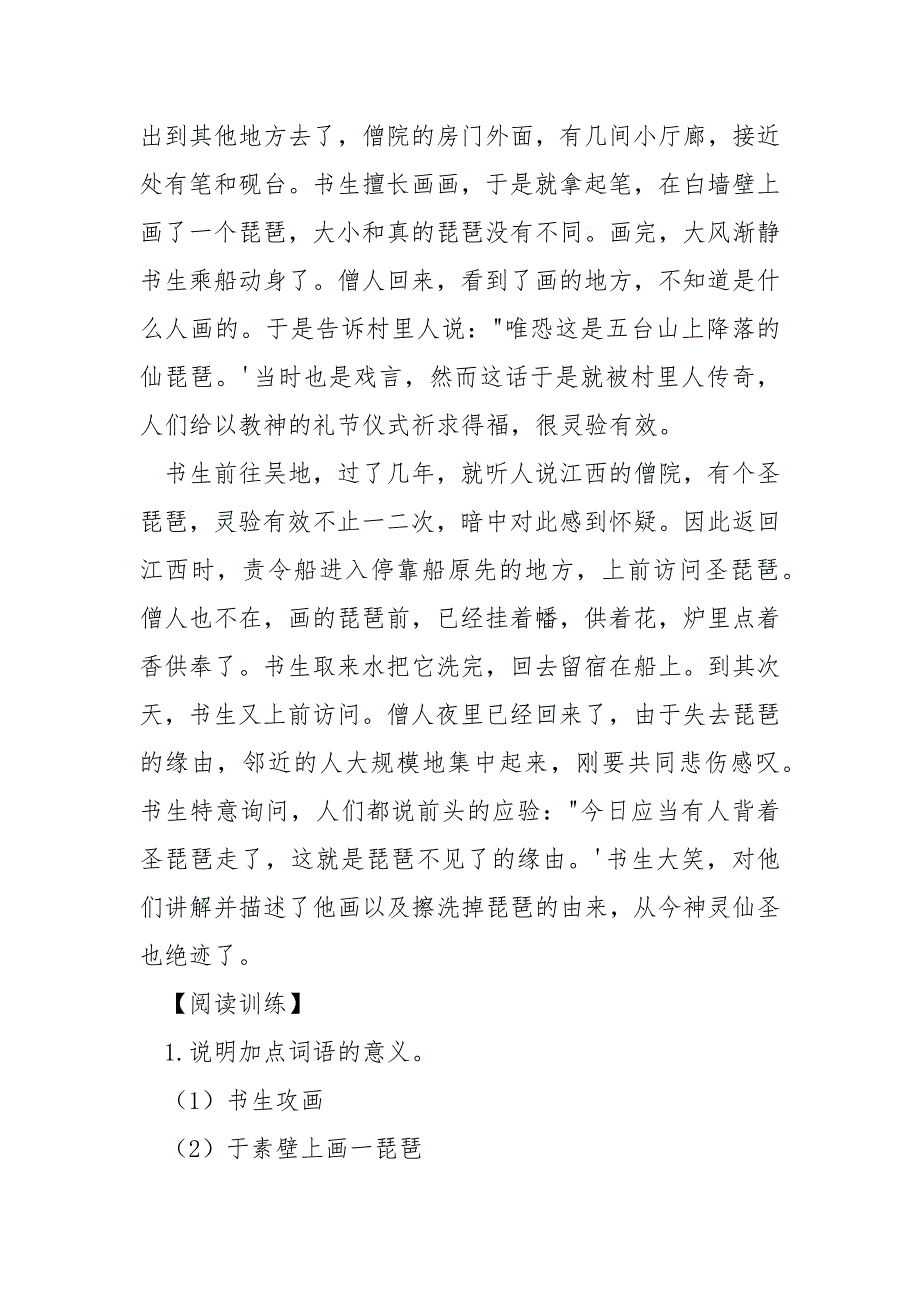 出到其他地方去了，僧院的房门外面，有几间小厅廊，接近
处有笔和砚台。书生擅长画画，于是就拿起笔，在白墙壁上
画了一个琵琶，大小和真的琵琶没有不同。画完，大风渐静
书生乘船动身了。僧人回来，看到了画的地方，不知道是什
么人画的。于是告诉村里人说："唯恐这是五台山上降落的
仙琵琶。'当时也是戏言，然而这话于是就被村里人传奇，
人们给以教神的礼节仪式祈求得福，很灵验有效。
书生前往吴地，过了几年，就听人说江西的僧院，有个圣
琵琶，灵验有效不止一二次，暗中对此感到怀疑。因此返回
江西时，责令船进入停靠船原先的地方，上前访问圣琵琶。
僧人也不在，画的琵琶前，已经挂着幡，供着花，炉里点着
香供奉了。书生取来水把它洗完，回去留宿在船上。到其次
天，书生又上前访问。僧人夜里已经回来了，由于失去琵琶
的缘由，邻近的人大规模地集中起来，刚要共同悲伤感叹。
书生特意询问，人们都说前头的应验："今日应当有人背着
圣琵琶走了，这就是琵琶不见了的缘由。'书生大笑，对他
们讲解并描述了他画以及擦洗掉琵琶的由来，从今神灵仙圣
也绝迹了。
【阅读训练】
1.说明加点词语的意义。
（1）书生攻画
（2）于素壁上画一琵琶